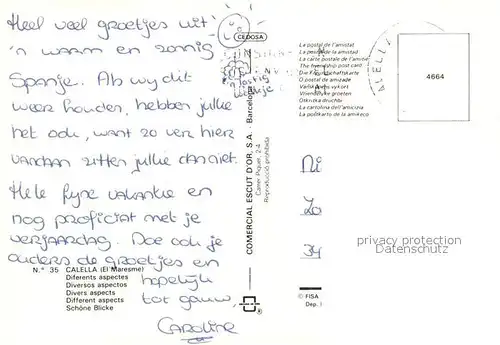 Heel veel groetjes uit
'n warm en zonnig
Spanje. Als wy dit
weer houden, hebben jullie
het ook, want zo ver hier
vandaan zitten jullie dan niet.
Hele fyne vakantie en
nog proficiat met je
verjaardag. Doe ook je
ouders de groetjes en
hopelijk
tot gauw,
Caroline
N.° 35 CALELLA (El Maresme)
Diferents aspectes
Diversos aspectos
Divers aspects
Different aspects
Schöne Blicke
CEDOSA
COMERCIAL ESCUT D'OR, S.A. - Barcelona
Carrer Piquer, 2-4
Reproducció prohibida
La postal de l'amistat
La postal de la amistad
La carte postale de l'amitié
The friendship post card
Die Freundschaftskarte
O postal de amizade
Vänskapens vykort
Vriendelijke groeten
La cartolina dell'amicizia
La postkarto de la amikeco
CALELLA
4664
Ni
Zo
34
privacy protection
Datenschutz
© FISA
Dep.